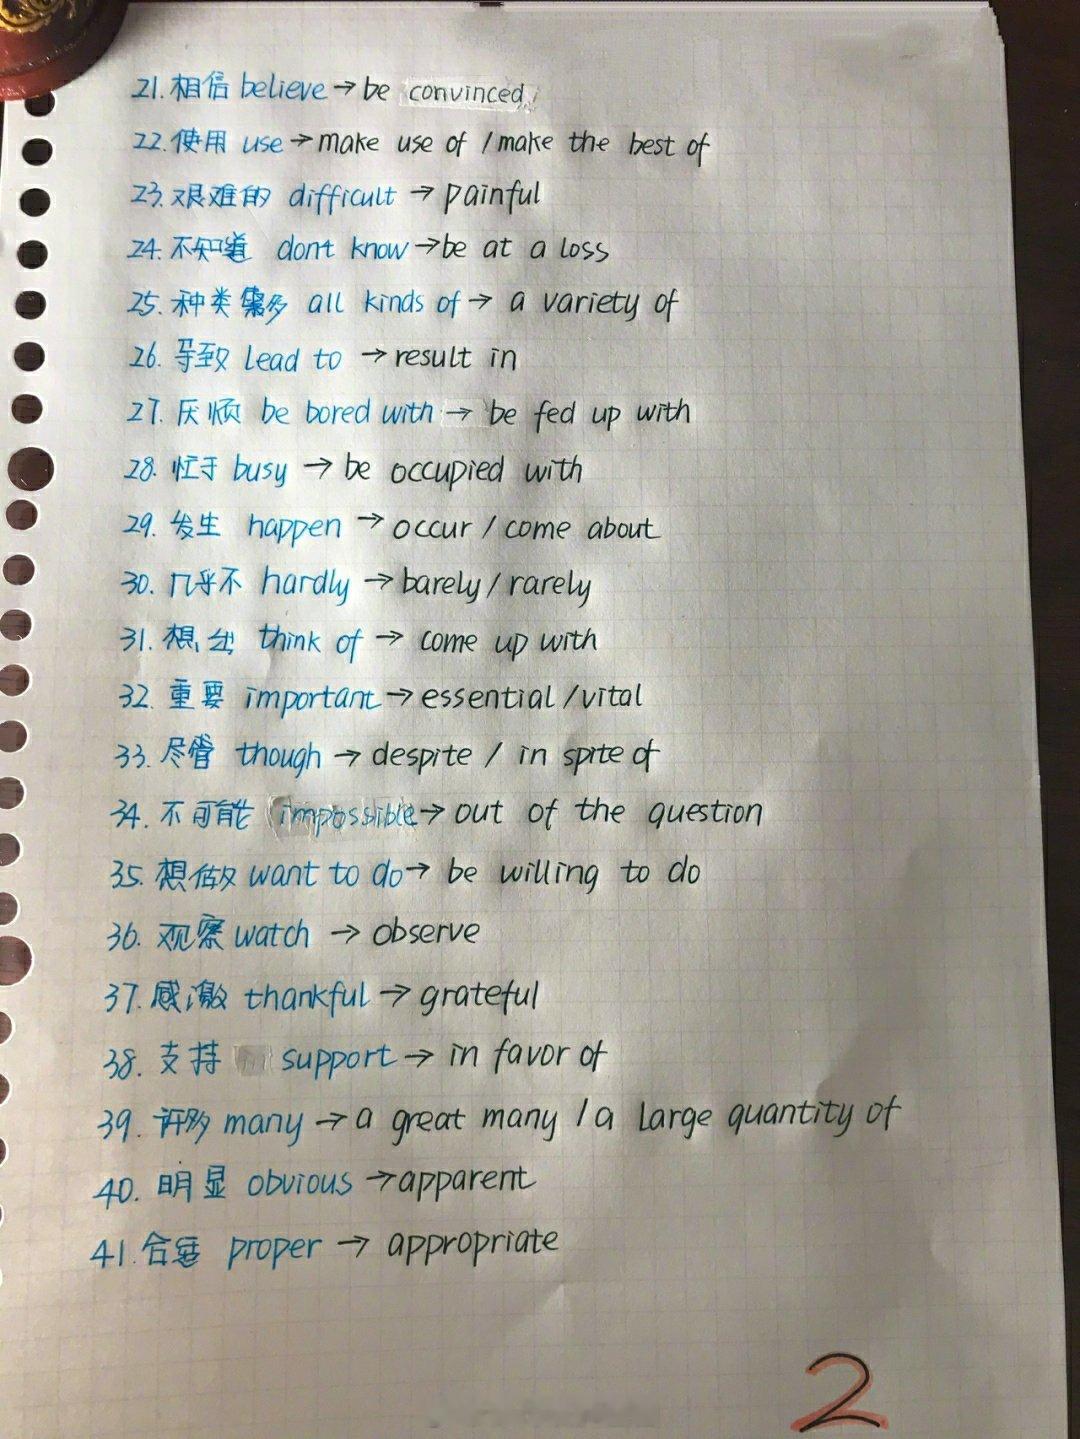 21. 相信 believe → be convinced
22. 使用 use → make use of / make the best of
23. 艰难的 difficult → painful
24. 不知道 dont know → be at a loss
25. 种类繁多 all kinds of → a variety of
26. 导致 lead to → result in
27. 厌烦 be bored with → be fed up with
28. 忙于 busy → be occupied with
29. 发生 happen → occur / come about
30. 几乎不 hardly → barely / rarely
31. 想出 think of → come up with
32. 重要 important → essential / vital
33. 尽管 though → despite / in spite of
34. 不可能 impossible → out of the question
35. 想做 want to do → be willing to do
36. 观察 watch → observe
37. 感激 thankful → grateful
38. 支持 support → in favor of
39. 许多 many → a great many / a large quantity of
40. 明显 obvious → apparent
41. 合适 proper → appropriate
2